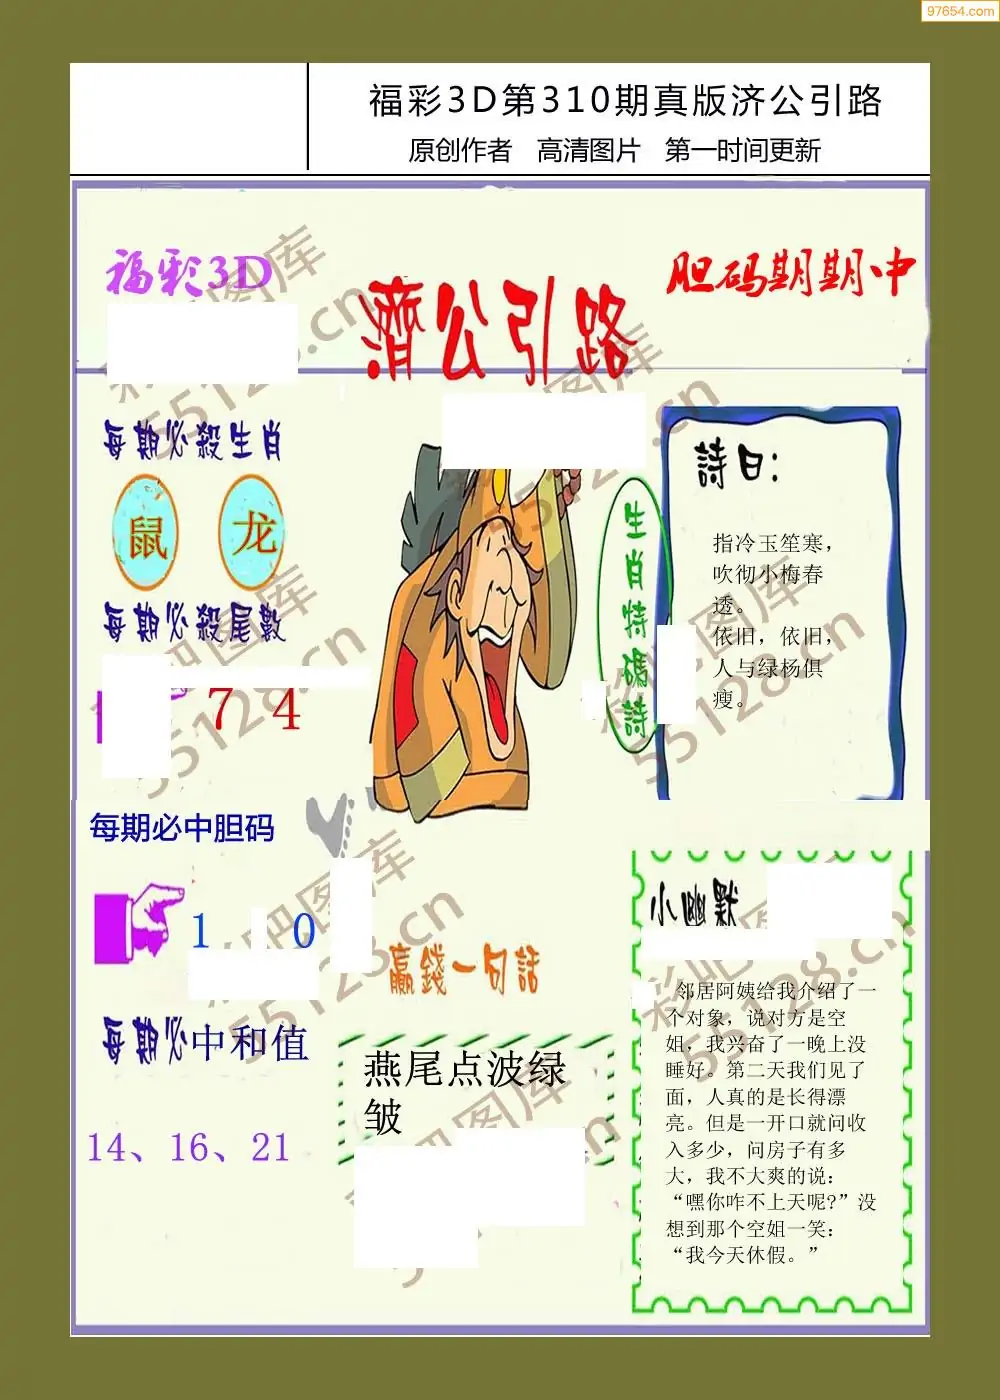 97654.com
福彩3D第310期真版济公引路
原创作者 高清图片 第一时间更新
福彩3D
濟公引路
胆码期期中
每期必殺生肖
鼠 龙
每期必殺尾數
7 4
每期必中胆码
1 0
每期必中和值
14、16、21
生肖特碼詩
詩曰：
指冷玉笙寒，
吹彻小梅春
透。
依旧，依旧，
人与绿杨俱
瘦。
贏錢一句話
燕尾点波绿
皱
小幽默
邻居阿姨给我介绍了一
个对象，说对方是空
姐，我兴奋了一晚上没
睡好。第二天我们见了
面，人真的是长得漂
亮。但是一开口就问收
入多少，问房子有多
大，我不大爽的说：
“嘿你咋不上天呢?”没
想到那个空姐一笑：
“我今天休假。”
彩吧图库
55128.cn
彩吧图库
55128.cn
彩吧图库
55128.cn
彩吧图库
55128.cn